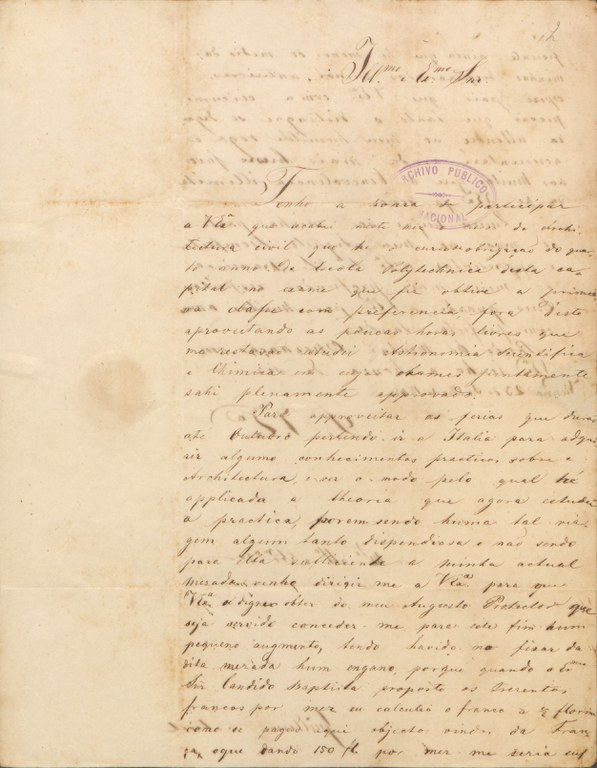 2
Ill.mo e Ex.mo Snr.
ARCHIVO PUBLICO
NACIONAL
Tenho a honra de participar
a V.Exa que acabei este de Archi
tectura civil que he curso obrigação do quar
to anno da Escola Polytechnica desta ca
pital no exame que fiz obtive a primei
ra classe com preferencia, fora disto
aproveitando as poucas horas livres que
me restavão estudei Astronomia Scientifica
e Chimica em cujos exames juntamente
sahi plenamente approvado.
Para approveitar as ferias que durão
até Outubro pertendo ir a Italia para adqui
rir alguns conhecimentos practicos sobre a
Architectura, e ver o modo pelo qual he
applicada a theoria que agora estudei
a practica, porem sendo huma tal via
gem algum tanto dispendiosa e não sendo
para ella sufficiente a minha actual
mezada, venho dirigir me a V.Exa para que
V.Exa se digne obter do meu Augusto Protector que
seja servido conceder-me para este fim hum
pequeno augmento, tendo havido no fixar da
dita mezada hum engano, porque quando o Ex.mo
Snr. Candido Baptista propoz os Trezentos
francos por mez eu calculei o franco a ½ florim
como se pagão aqui objectos vindos da Fran
ça, o que dando 150 fl. por mez me seria suf